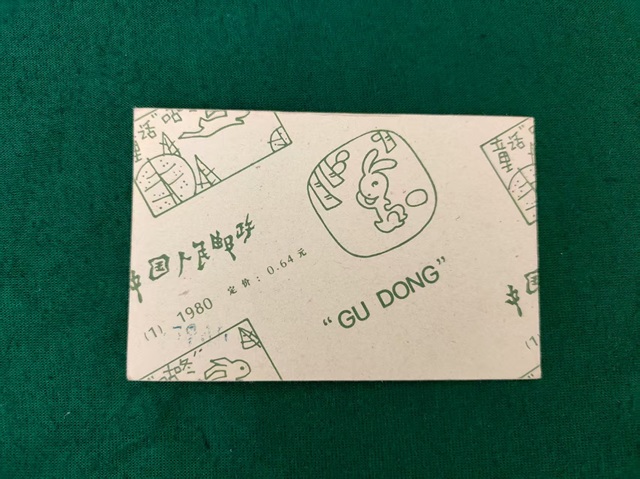 童话"咕
童话
中国人民邮政
定价：0.64元
(1) 1980
"GU DONG"
中
"咕咚"